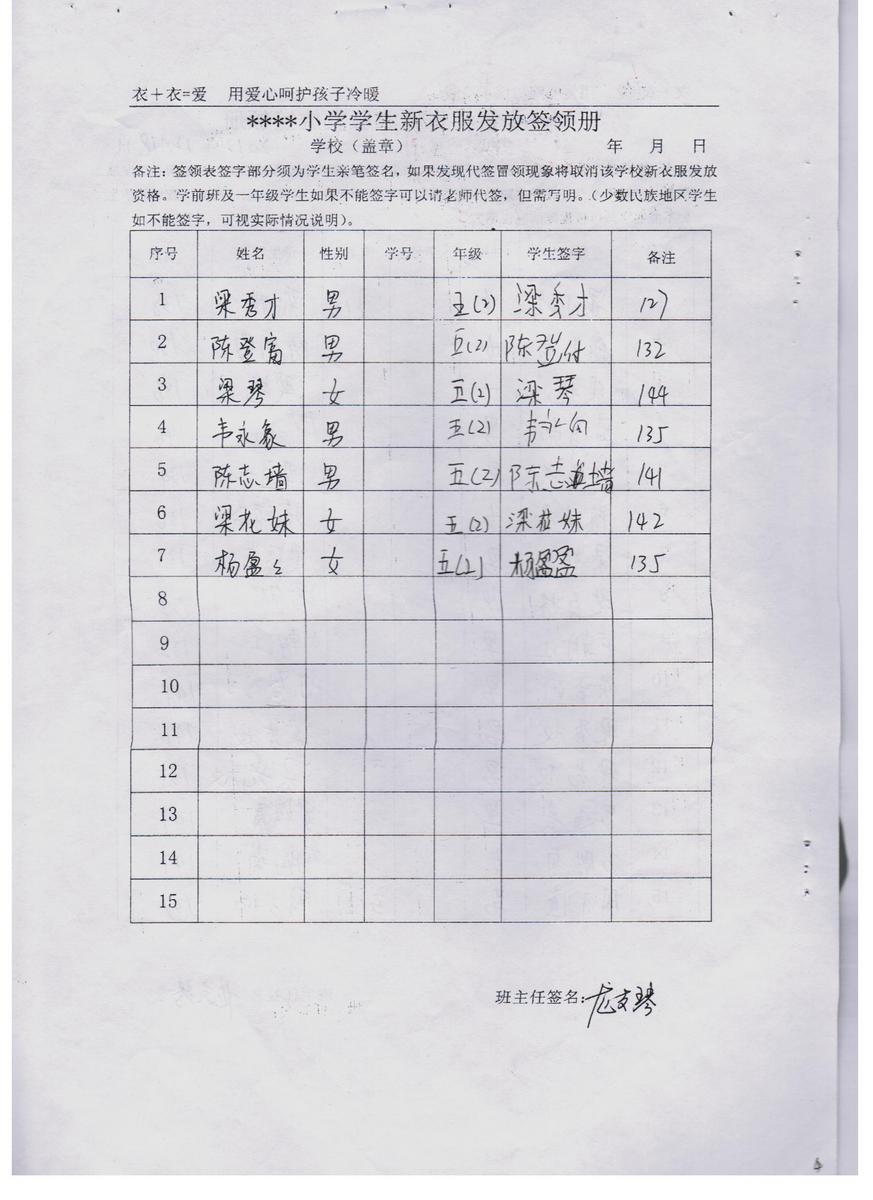 衣+衣=爱 用爱心呵护孩子冷暖
****小学学生新衣服发放签领册
学校（盖章） 年 月 日
备注：签领表签字部分须为学生亲笔签名，如果发现代签冒领现象将取消该学校新衣服发放
资格。学前班及一年级学生如果不能签字可以请老师代签，但需写明。（少数民族地区学生
如不能签字，可视实际情况说明）。
序号 姓名 性别 学号 年级 学生签字 备注
1 梁秀才 男 五(2) 梁秀才 127
2 陈登富 男 五(2) 陈登付 132
3 梁琴 女 五(2) 梁琴 144
4 韦永象 男 五(2) 135
5 陈志墙 男 五(2) 陈志墙 141
6 梁花妹 女 五(2) 梁花妹 142
7 杨盈々 女 五(2) 杨盈盈 135
8
9
10
11
12
13
14
15
班主任签名：龙支琴